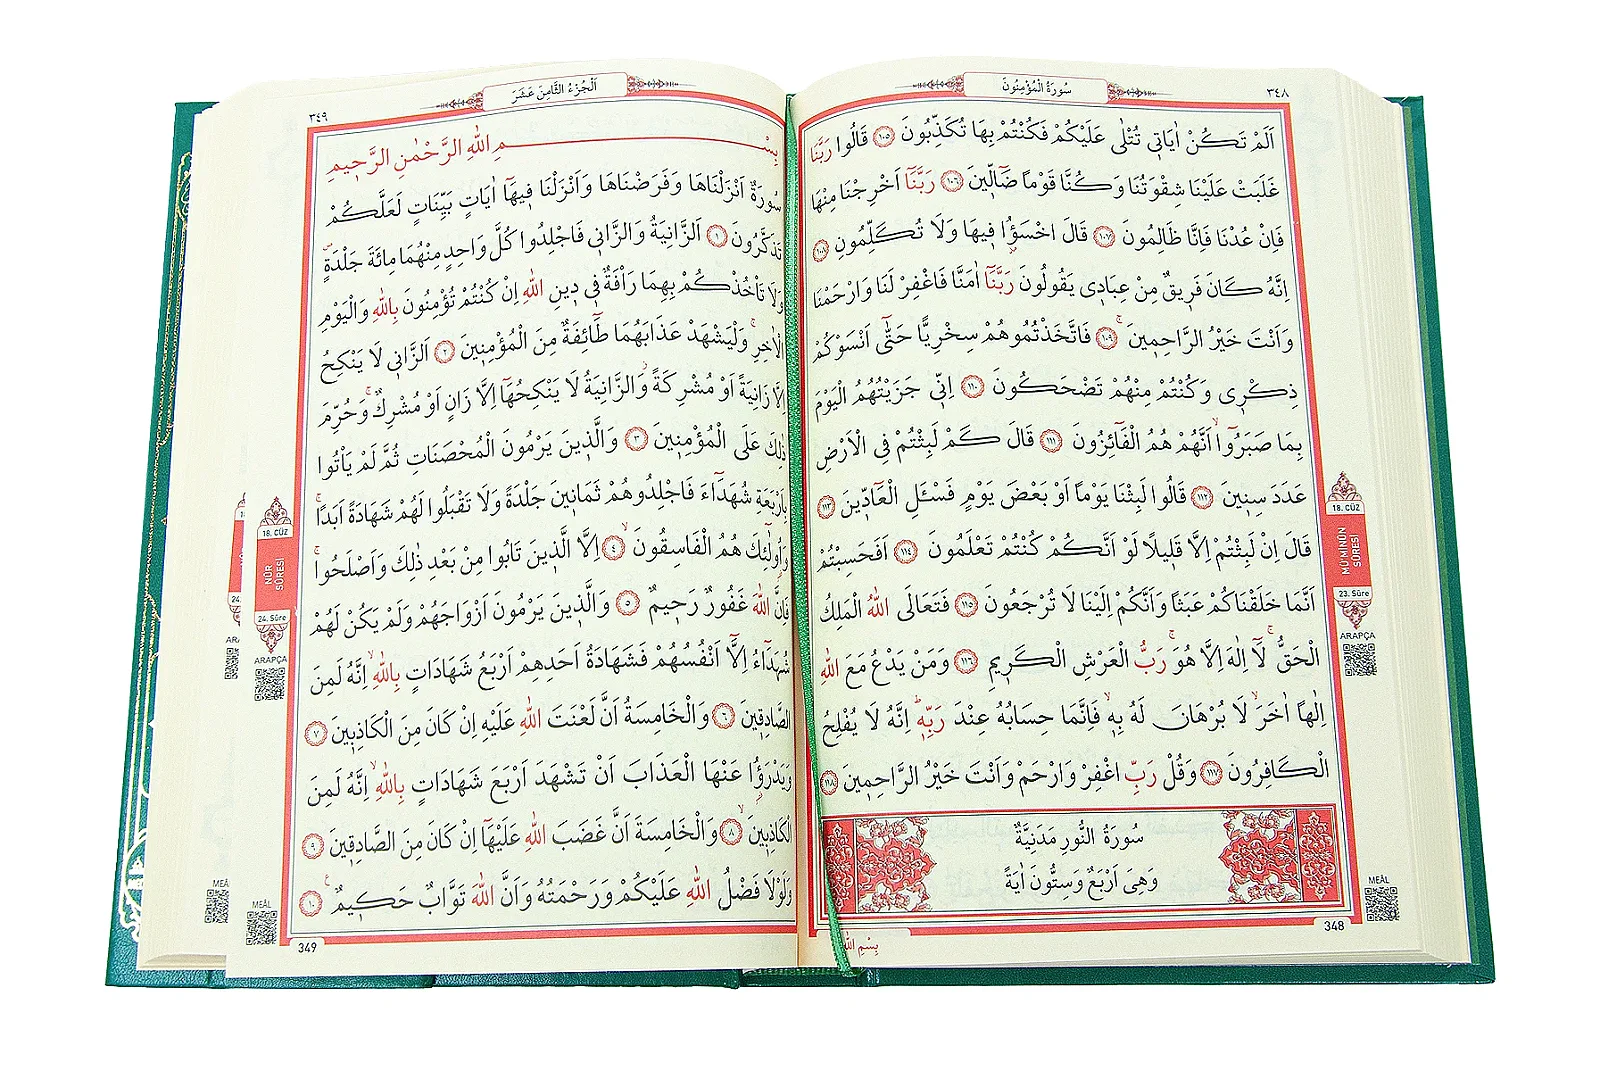 سُورَةُ الْمُؤْمِنُونَ
٣٤٨
اَلَمْ تَكُنْ اٰيَاتٖي تُتْلٰى عَلَيْكُمْ فَكُنْتُمْ بِهَا تُكَذِّبُونَ ١٠٥ قَالُوا رَبَّنَا
غَلَبَتْ عَلَيْنَا شِقْوَتُنَا وَكُنَّا قَوْمًا ضَٓالّٖينَ ١٠٦ رَبَّنَٓا اَخْرِجْنَا مِنْهَا
فَاِنْ عُدْنَا فَاِنَّا ظَالِمُونَ ١٠٧ قَالَ اخْسَؤُ۫ا فٖيهَا وَلَا تُكَلِّمُونِ ١٠٨
اِنَّهُ كَانَ فَرٖيقٌ مِنْ عِبَادٖي يَقُولُونَ رَبَّنَٓا اٰمَنَّا فَاغْفِرْ لَنَا وَارْحَمْنَا
وَاَنْتَ خَيْرُ الرَّاحِمٖينَۚ ١٠٩ فَاتَّخَذْتُمُوهُمْ سِخْرِيًّا حَتّٰٓى اَنْسَوْكُمْ
ذِكْرٖي وَكُنْتُمْ مِنْهُمْ تَضْحَكُونَ ١١٠ اِنّٖي جَزَيْتُهُمُ الْيَوْمَ
بِمَا صَبَرُٓواۙ اَنَّهُمْ هُمُ الْفَٓائِزُونَ ١١١ قَالَ كَمْ لَبِثْتُمْ فِي الْاَرْضِ
عَدَدَ سِنٖينَ ١١٢ قَالُوا لَبِثْنَا يَوْمًا اَوْ بَعْضَ يَوْمٍ فَسْـَٔلِ الْعَٓادّٖينَ ١١٣
قَالَ اِنْ لَبِثْتُمْ اِلَّا قَلٖيلًا لَوْ اَنَّكُمْ كُنْتُمْ تَعْلَمُونَ ١١٤ اَفَحَسِبْتُمْ
اَنَّمَا خَلَقْنَاكُمْ عَبَثًا وَاَنَّكُمْ اِلَيْنَا لَا تُرْجَعُونَ ١١٥ فَتَعَالَى اللّٰهُ الْمَلِكُ
الْحَقُّۚ لَٓا اِلٰهَ اِلَّا هُوَۚ رَبُّ الْعَرْشِ الْكَرٖيمِ ١١٦ وَمَنْ يَدْعُ مَعَ اللّٰهِ
اِلٰهًا اٰخَرَۙ لَا بُرْهَانَ لَهُ بِهٖۙ فَاِنَّمَا حِسَابُهُ عِنْدَ رَبِّهٖۜ اِنَّهُ لَا يُفْلِحُ
الْكَافِرُونَ ١١٧ وَقُلْ رَبِّ اغْفِرْ وَارْحَمْ وَاَنْتَ خَيْرُ الرَّاحِمٖينَ ١١٨
سُورَةُ النُّورِ مَدَنِيَّةٌ
وَهِيَ اَرْبَعٌ وَسِتُّونَ اٰيَةً
348
بِسْمِ اللّٰهِ
18. CÜZ
MÜ'MİNÛN SÛRESİ
23. Sûre
ARAPÇA
MEÂL
اَلْجُزْءُ الثَّامِنَ عَشَرَ
٣٤٩
بِسْمِ اللّٰهِ الرَّحْمٰنِ الرَّحٖيمِ
سُورَةٌ اَنْزَلْنَاهَا وَفَرَضْنَاهَا وَاَنْزَلْنَا فٖيهَٓا اٰيَاتٍ بَيِّنَاتٍ لَعَلَّكُمْ
تَذَكَّرُونَ ١ اَلزَّانِيَةُ وَالزَّانٖي فَاجْلِدُوا كُلَّ وَاحِدٍ مِنْهُمَا مِائَةَ جَلْدَةٍۖ
وَلَا تَأْخُذْكُمْ بِهِمَا رَأْفَةٌ فٖي دٖينِ اللّٰهِ اِنْ كُنْتُمْ تُؤْمِنُونَ بِاللّٰهِ وَالْيَوْمِ
الْاٰخِرِۚ وَلْيَشْهَدْ عَذَابَهُمَا طَٓائِفَةٌ مِنَ الْمُؤْمِنٖينَ ٢ اَلزَّانٖي لَا يَنْكِحُ
اِلَّا زَانِيَةً اَوْ مُشْرِكَةًۘ وَالزَّانِيَةُ لَا يَنْكِحُهَٓا اِلَّا زَانٍ اَوْ مُشْرِكٌۚ وَحُرِّمَ
ذٰلِكَ عَلَى الْمُؤْمِنٖينَ ٣ وَالَّذٖينَ يَرْمُونَ الْمُحْصَنَاتِ ثُمَّ لَمْ يَأْتُوا
بِاَرْبَعَةِ شُهَدَٓاءَ فَاجْلِدُوهُمْ ثَمَانٖينَ جَلْدَةً وَلَا تَقْبَلُوا لَهُمْ شَهَادَةً اَبَدًاۚ
وَاُو۬لٰٓئِكَ هُمُ الْفَاسِقُونَۙ ٤ اِلَّا الَّذٖينَ تَابُوا مِنْ بَعْدِ ذٰلِكَ وَاَصْلَحُواۚ
فَاِنَّ اللّٰهَ غَفُورٌ رَحٖيمٌ ٥ وَالَّذٖينَ يَرْمُونَ اَزْوَاجَهُمْ وَلَمْ يَكُنْ لَهُمْ
شُهَدَٓاءُ اِلَّٓا اَنْفُسُهُمْ فَشَهَادَةُ اَحَدِهِمْ اَرْبَعُ شَهَادَاتٍ بِاللّٰهِۙ اِنَّهُ لَمِنَ
الصَّادِقٖينَ ٦ وَالْخَامِسَةُ اَنَّ لَعْنَتَ اللّٰهِ عَلَيْهِ اِنْ كَانَ مِنَ الْكَاذِبٖينَ ٧
وَيَدْرَؤُ۬ا عَنْهَا الْعَذَابَ اَنْ تَشْهَدَ اَرْبَعَ شَهَادَاتٍ بِاللّٰهِۙ اِنَّهُ لَمِنَ
الْكَاذِبٖينَۙ ٨ وَالْخَامِسَةَ اَنَّ غَضَبَ اللّٰهِ عَلَيْهَٓا اِنْ كَانَ مِنَ الصَّادِقٖينَ ٩
وَلَوْلَا فَضْلُ اللّٰهِ عَلَيْكُمْ وَرَحْمَتُهُ وَاَنَّ اللّٰهَ تَوَّابٌ حَكٖيمٌۚ ١٠
349
18. CÜZ
NÛR SÛRESİ
24. Sûre
ARAPÇA
MEÂL
MEÂ